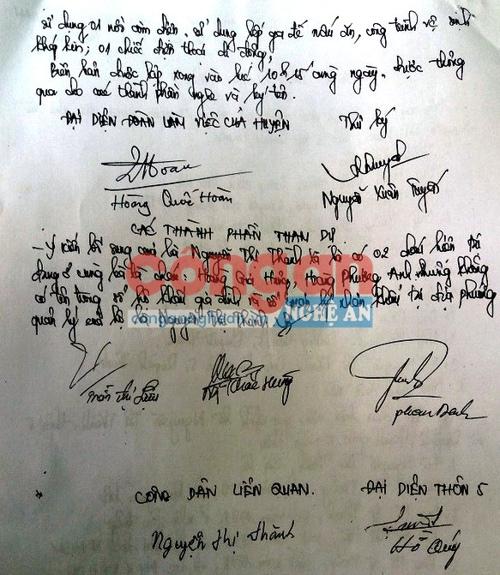 sử dụng 01 nồi cơm điện. sử dụng bếp ga để nấu ăn, công trình vệ sinh
khép kín; 01 chiếc điện thoại di động,
Biên bản được lập xong vào lúc 10h15' cùng ngày. được thông
qua cho các thành phần nghe và ký tên.
ĐẠI DIỆN ĐOÀN LÀM VIỆC CỦA HUYỆN Thư ký
Hoàng Quốc Hoàn Nguyễn Xuân
CÁC THÀNH PHẦN THAM DỰ
- Ý kiến bổ sung con bà Nguyễn Thị Thành là có 02
cùng bà là cháu: Hoàng Gia Hưng, Hoàng Phương Anh nhưng không
có tên trong sổ hộ khẩu gia đình khẩu tại địa phương
quản lý bà Nguyễn Thị Thành
congan
NGHỆ AN
Trần Thị
Phan Danh
CÔNG DÂN LIÊN QUAN. ĐẠI DIỆN THÔN 5
Nguyễn Thị Thành Hồ Quý